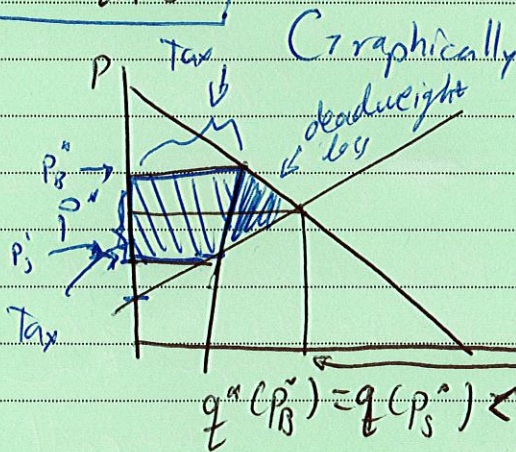 Graphically
Tax
deadweight
loss
P
P_B*
P*
P_S*
Tax
q*(P_B*) = q(P_S*) <